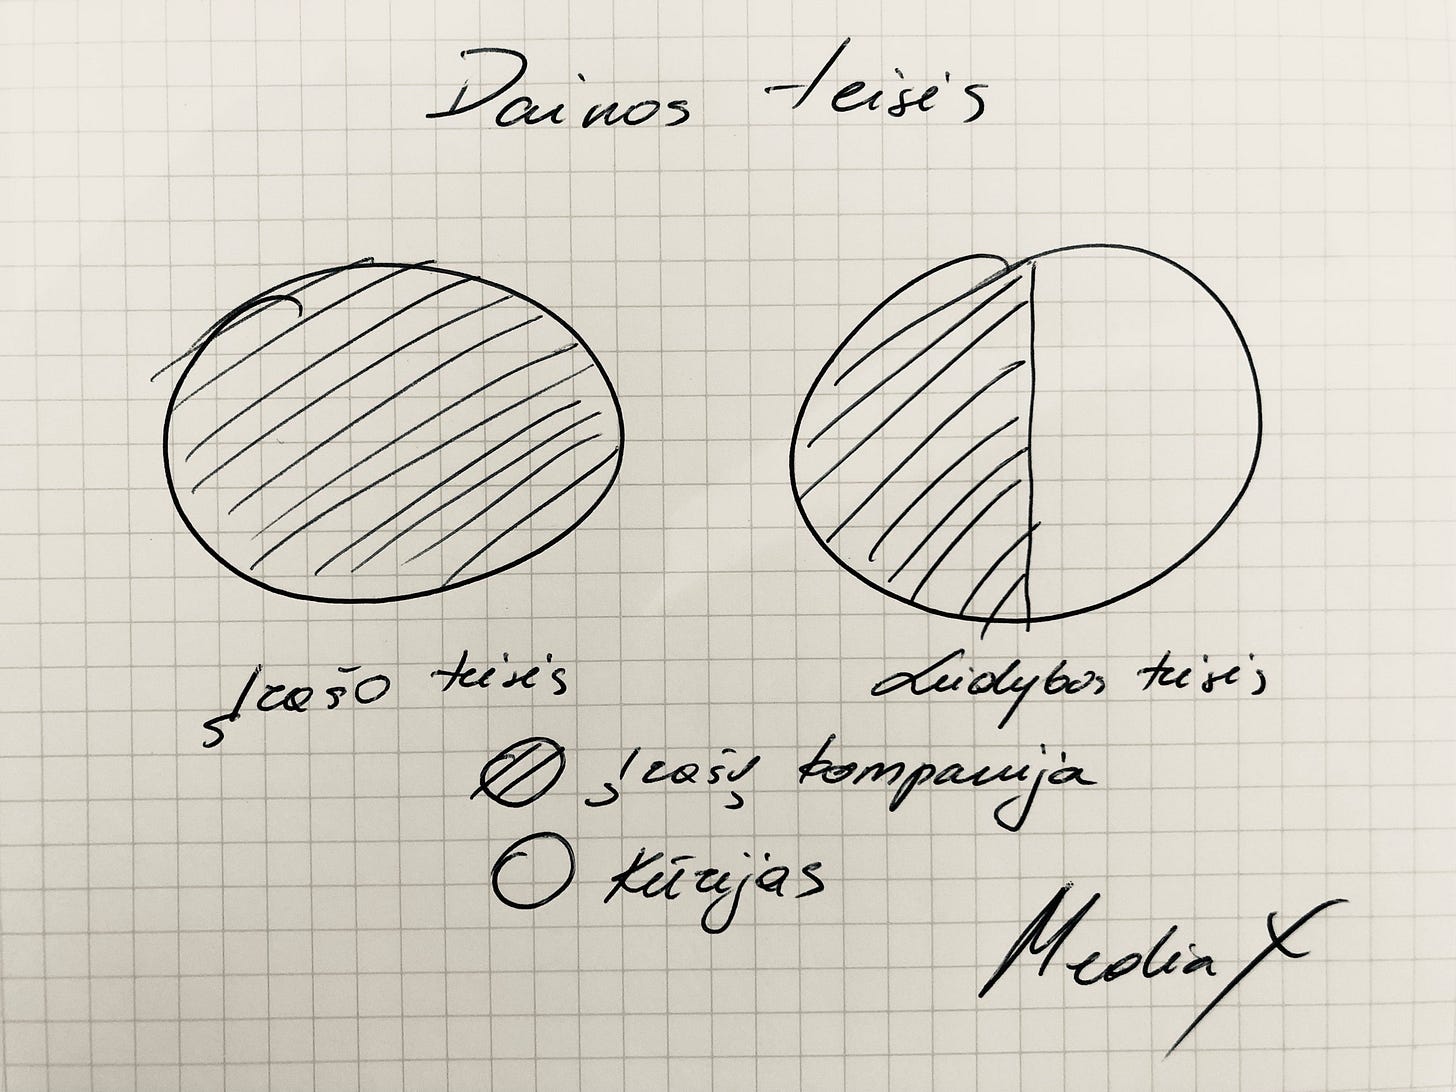 Dainos teisės
Įrašo teisės
Leidybos teisės
Įrašų kompanija
Kūrėjas
Media X